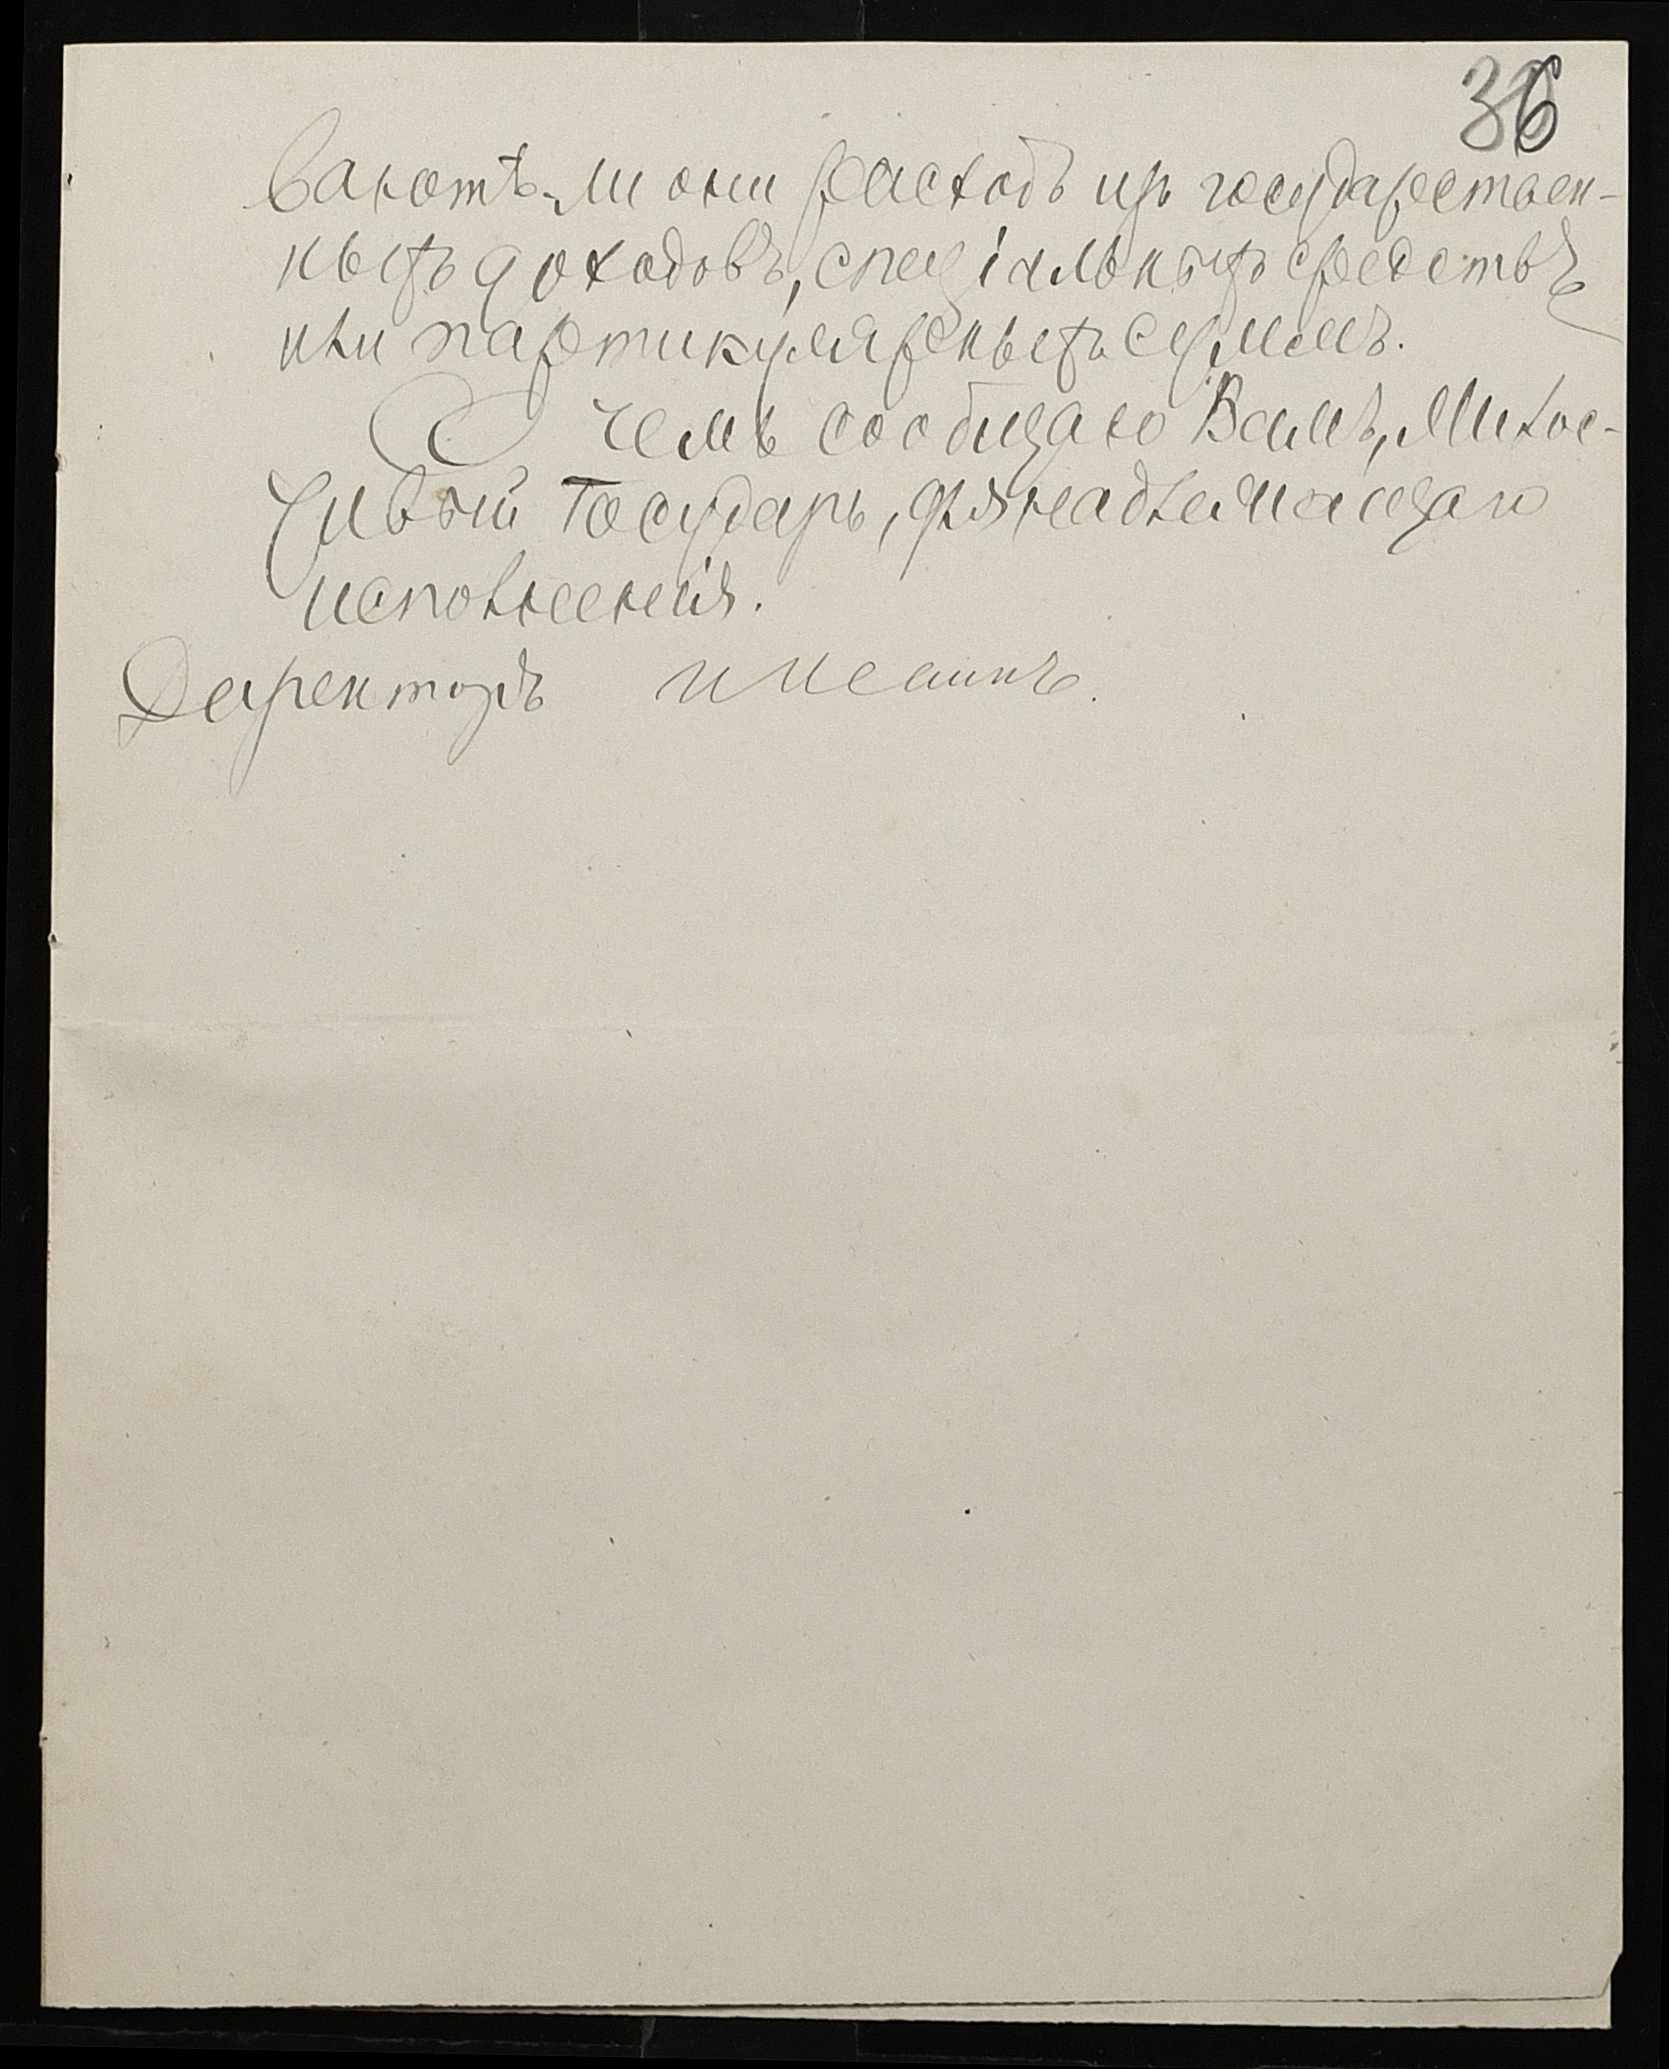 36
ваютъ-ли они расходъ изъ государствен-
ныхъ доходовъ, спеціальныхъ средствъ
или партикулярныхъ суммъ.
О чемъ сообщаю Вамъ, Милос-
тивый Государь, для надлежащаго
исполненія.
Директоръ